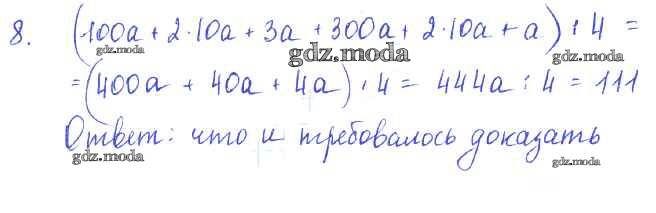 8. (100a + 2·10a + 3a + 300a + 2·10a + a) : 4 =
gdz.moda gdz.moda gdz.moda
= (400a + 40a + 4a) : 4 = 444a : 4 = 111
Ответ: что и требовалось доказать
gdz.moda gdz.moda